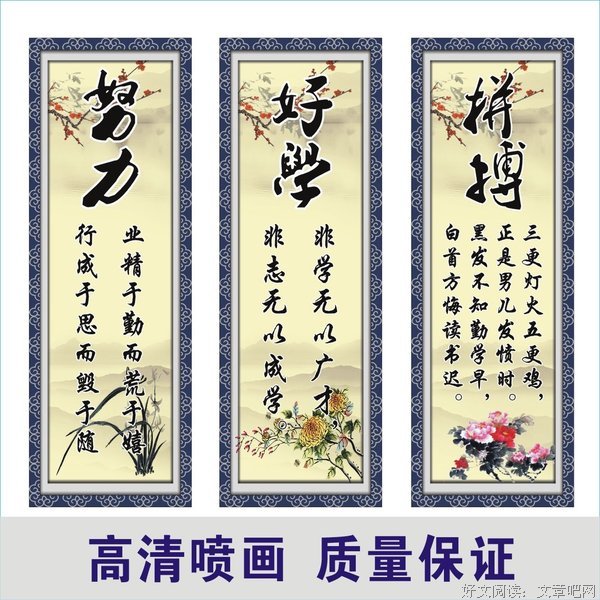 努力
业精于勤而荒于嬉
行成于思而毁于随
好學
非学无以广才，
非志无以成学。
拼搏
三更灯火五更鸡，
正是男儿发愤时。
黑发不知勤学早，
白首方悔读书迟。
高清喷画 质量保证
好文阅读：文章吧网